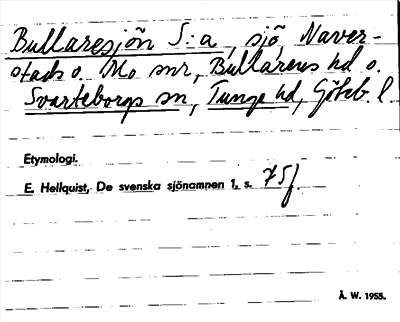 Bullaresjön S:a, sjö, Naver-
stads o. Mo snr, Bullarens hd o.
Svarteborgs sn, Tunge hd, Göteb. l.
Etymologi.
E. Hellquist, De svenska sjönamnen 1, s. 75f.
Å. W. 1955.